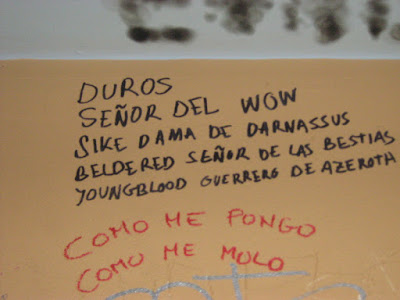 DUROS
SEÑOR DEL WOW
SIKE DAMA DE DARNASSUS
BELDERED SEÑOR DE LAS BESTIAS
YOUNGBLOOD GUERRERO DE AZEROTH
COMO ME PONGO
COMO ME MOLO